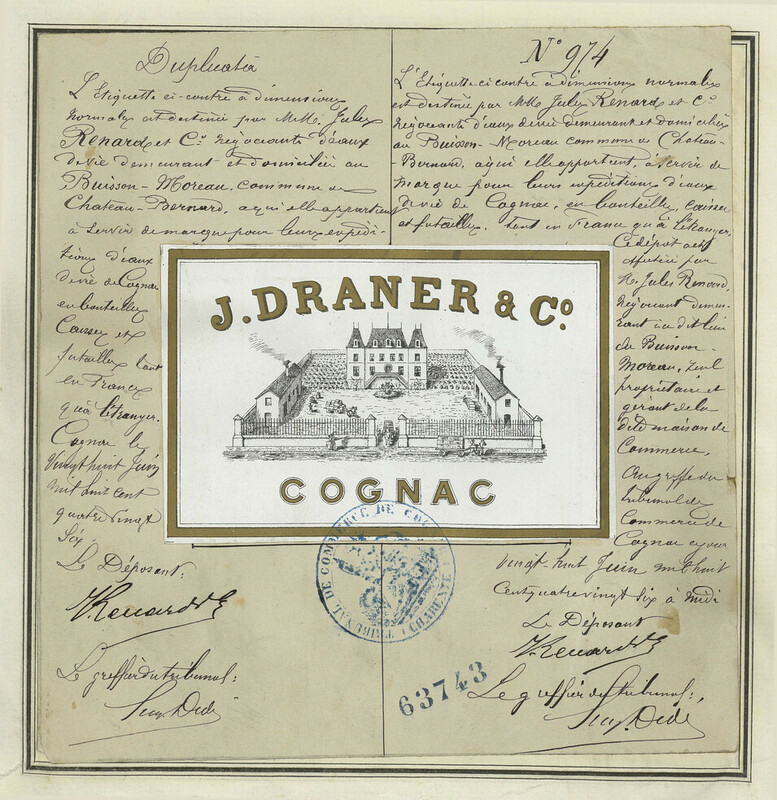 Duplicata
L'Etiquette ci-contre à dimensions
normales est destinée par M.M. Jules
Renard et Cie négociants d'eaux
de vie demeurant et domiciliés au
Buisson-Moreau, commune de
Chateau-Bernard, a qui elle appartient,
à servir de marque pour leurs expédi-
tions d'eaux
de vie de Cognac
en bouteilles
Caisses et
futailles tant
en France
qu'à l'étranger.
Cognac le
Vingt huit Juin
mil huit cent
quatre vingt
Six.
Le Déposant:
Le greffier du tribunal:
No 974
L'Etiquette ci contre à dimensions normales
est destinée par MM. Jules Renard et Cie
négociants d'eaux de vie demeurant et domiciliés
au Buisson-Moreau commune de Chateau-
Bernard, a qui elle appartient, à servir de
marque pour leurs expéditions d'eaux
de vie de Cognac, en bouteilles, caisses
et futailles, tant en France qu'à l'étranger.
Ce dépôt a été
effectué par
M. Jules Renard,
négociant demeu-
rant au dit lieu
du Buisson-
Moreau, seul
propriétaire et
gérant de la
dite maison de
Commerce,
Au greffe du
tribunal de
Commerce de
Cognac ce jour
vingt-huit Juin mil huit
Cent quatre vingt six à midi
Le Déposant
Le greffier du tribunal:
J. DRANER & Co.
COGNAC
TRIBUNAL DE COMMERCE DE COGNAC
CHARENTE
63743